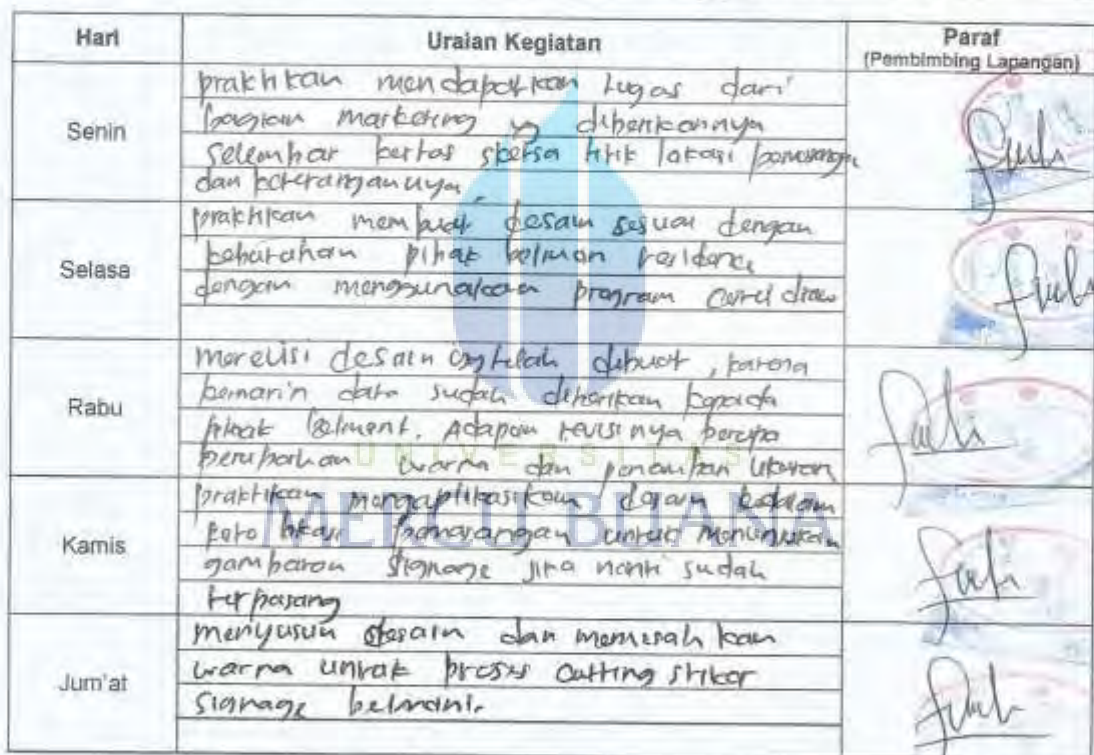 Hari
Uraian Kegiatan
Paraf
(Pembimbing Lapangan)
Senin
praktikan mendapatkan tugas dari
bagian marketing yg diberikannya
Selembar kertas titik lokasi
dan keterangannya
Selasa
praktikan membuat desain sesuai dengan
pihak belmon residence
dengan menggunakan program corel draw
Rabu
merevisi desain yg telah dibuat, karena
kemarin data sudah diberikan kepada
pihak Belment. Adapun revisi nya berupa
warna dan ukuran
Kamis
praktikan mengaplikasikan desain kedalam
foto lokasi pemasangan untuk
gambaran signage jika nanti sudah
terpasang
Jum'at
menyusun desain dan memisahkan
warna untuk proses cutting stiker
signage
UNIVERSITAS
MERCU BUANA